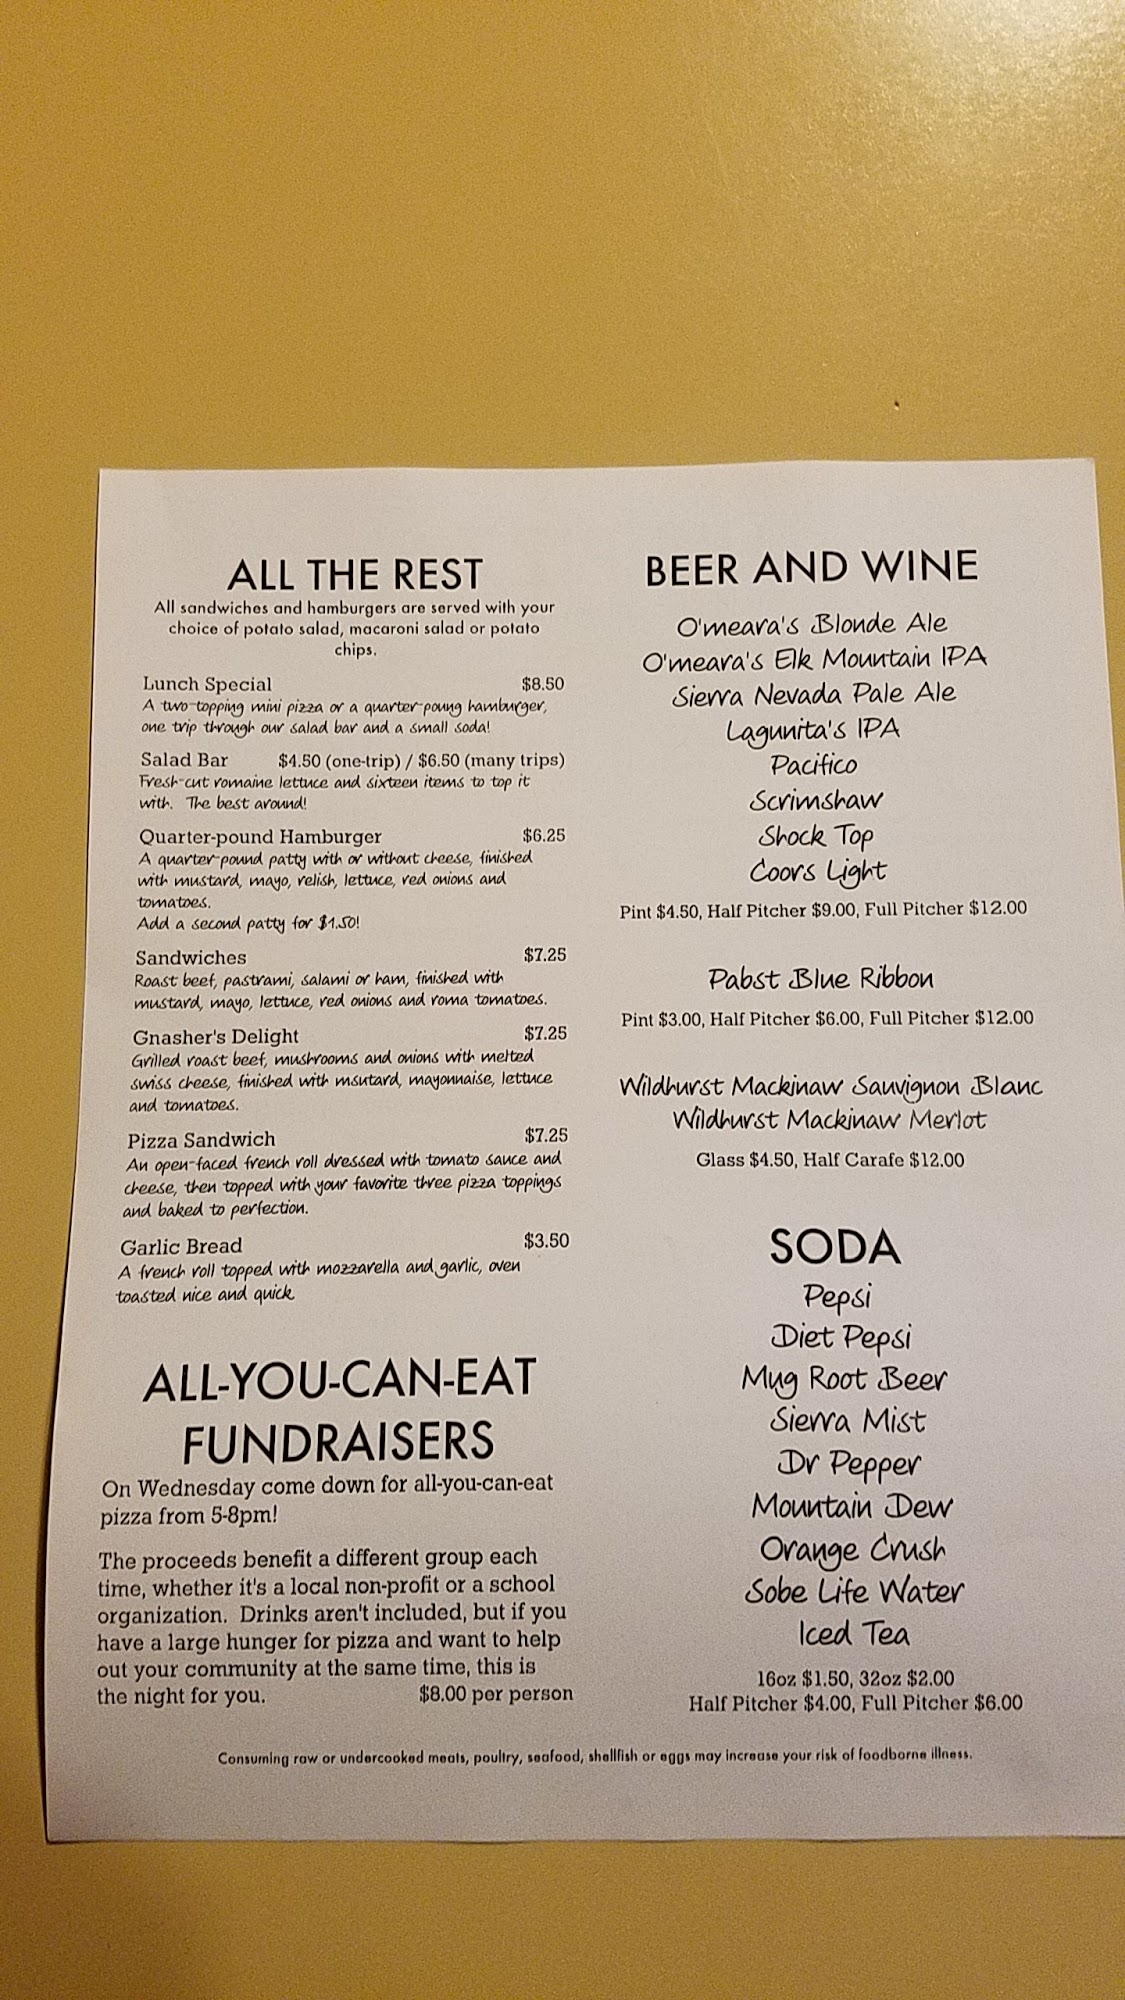 ALL THE REST
All sandwiches and hamburgers are served with your
choice of potato salad, macaroni salad or potato
chips.
Lunch Special $8.50
A two-topping mini pizza or a quarter-poung hamburger,
one trip through our salad bar and a small soda!
Salad Bar $4.50 (one-trip) / $6.50 (many trips)
Fresh-cut romaine lettuce and sixteen items to top it
with. The best around!
Quarter-pound Hamburger $6.25
A quarter-pound patty with or without cheese, finished
with mustard, mayo, relish, lettuce, red onions and
tomatoes.
Add a second patty for $1.50!
Sandwiches $7.25
Roast beef, pastrami, salami or ham, finished with
mustard, mayo, lettuce, red onions and roma tomatoes.
Gnasher's Delight $7.25
Grilled roast beef, mushrooms and onions with melted
swiss cheese, finished with msutard, mayonnaise, lettuce
and tomatoes.
Pizza Sandwich $7.25
An open-faced french roll dressed with tomato sauce and
cheese, then topped with your favorite three pizza toppings
and baked to perfection.
Garlic Bread $3.50
A french roll topped with mozzarella and garlic, oven
toasted nice and quick
ALL-YOU-CAN-EAT
FUNDRAISERS
On Wednesday come down for all-you-can-eat
pizza from 5-8pm!
The proceeds benefit a different group each
time, whether it's a local non-profit or a school
organization. Drinks aren't included, but if you
have a large hunger for pizza and want to help
out your community at the same time, this is
the night for you. $8.00 per person
BEER AND WINE
O'meara's Blonde Ale
O'meara's Elk Mountain IPA
Sierra Nevada Pale Ale
Lagunita's IPA
Pacifico
Scrimshaw
Shock Top
Coors Light
Pint $4.50, Half Pitcher $9.00, Full Pitcher $12.00
Pabst Blue Ribbon
Pint $3.00, Half Pitcher $6.00, Full Pitcher $12.00
Wildhurst Mackinaw Sauvignon Blanc
Wildhurst Mackinaw Merlot
Glass $4.50, Half Carafe $12.00
SODA
Pepsi
Diet Pepsi
Mug Root Beer
Sierra Mist
Dr Pepper
Mountain Dew
Orange Crush
Sobe Life Water
Iced Tea
16oz $1.50, 32oz $2.00
Half Pitcher $4.00, Full Pitcher $6.00
Consuming raw or undercooked meats, poultry, seafood, shellfish or eggs may increase your risk of foodborne illness.